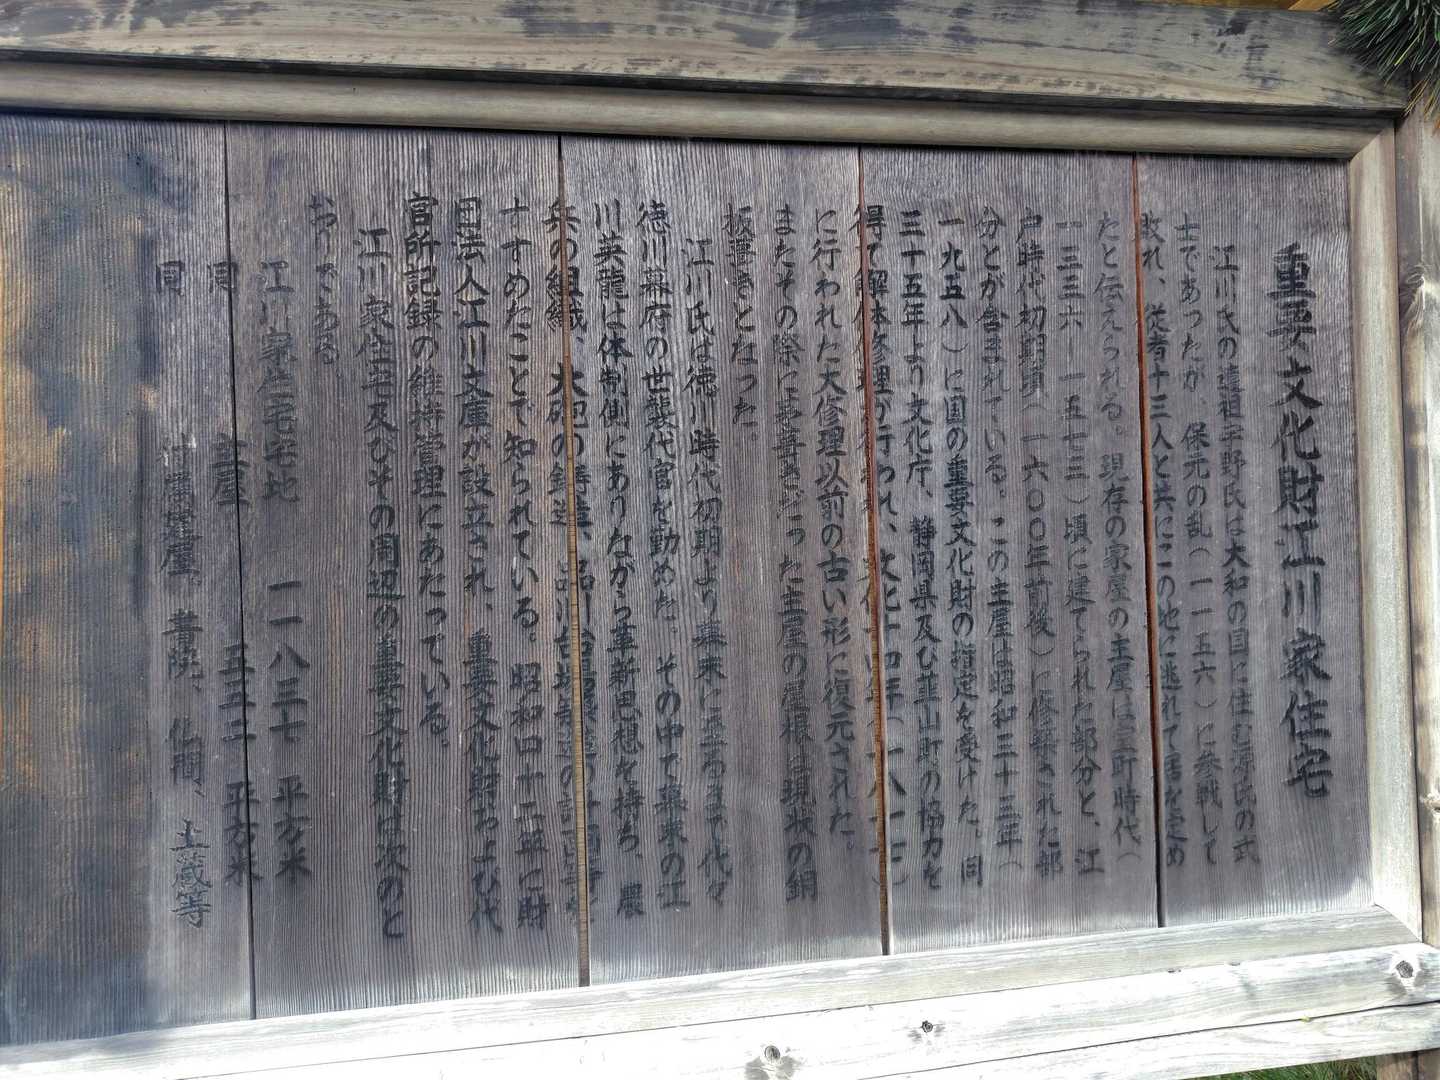 重要文化財江川家住宅
江川氏の遠祖宇野氏は大和の国に住む源氏の武
士であったが、保元の乱(一一五六)に参戦して
敗れ、従者十三人と共にこの地に逃れて居を定め
たと伝えられる。現存の家屋の主屋は室町時代(
一三三六-一五七三)頃に建てられた部分と、江
戸時代初期頃(一六〇〇年前後)に修築された部
分とが含まれている。この主屋は昭和三十三年(
一九五八)に国の重要文化財の指定を受けた。同
三十五年より文化庁、静岡県及び韮山町の協力を
得て解体修理が行われ、文化十四年(一八一七)
に行われた大修理以前の古い形に復元された。
またその際に茅葺きだった主屋の屋根は現状の銅
板葺きとなった。
江川氏は徳川時代初期より幕末に至るまで代々
徳川幕府の世襲代官を勤めた。その中で幕末の江
川英龍は体制側にありながら革新思想を持ち、農
兵の組織、大砲の鋳造、品川台場
すすめたことで知られている。昭和四十二年に財
団法人江川文庫が設立され、重要文化財および代
官所記録の維持管理にあたっている。
江川家住宅及びその周辺の重要文化財は次のと
おりである
江川家住宅宅地 一一八三七 平方米
同 主屋 五五二 平方米
同 書院、仏間、土蔵等